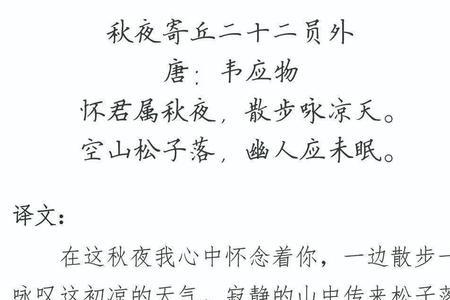 秋夜寄丘二十二员外
唐：韦应物
怀君属秋夜，散步咏凉天。
空山松子落，幽人应未眠。
译文：
在这秋夜我心中怀念着你，一边散步一
咏叹这初凉的天气。寂静的山中传来松子落